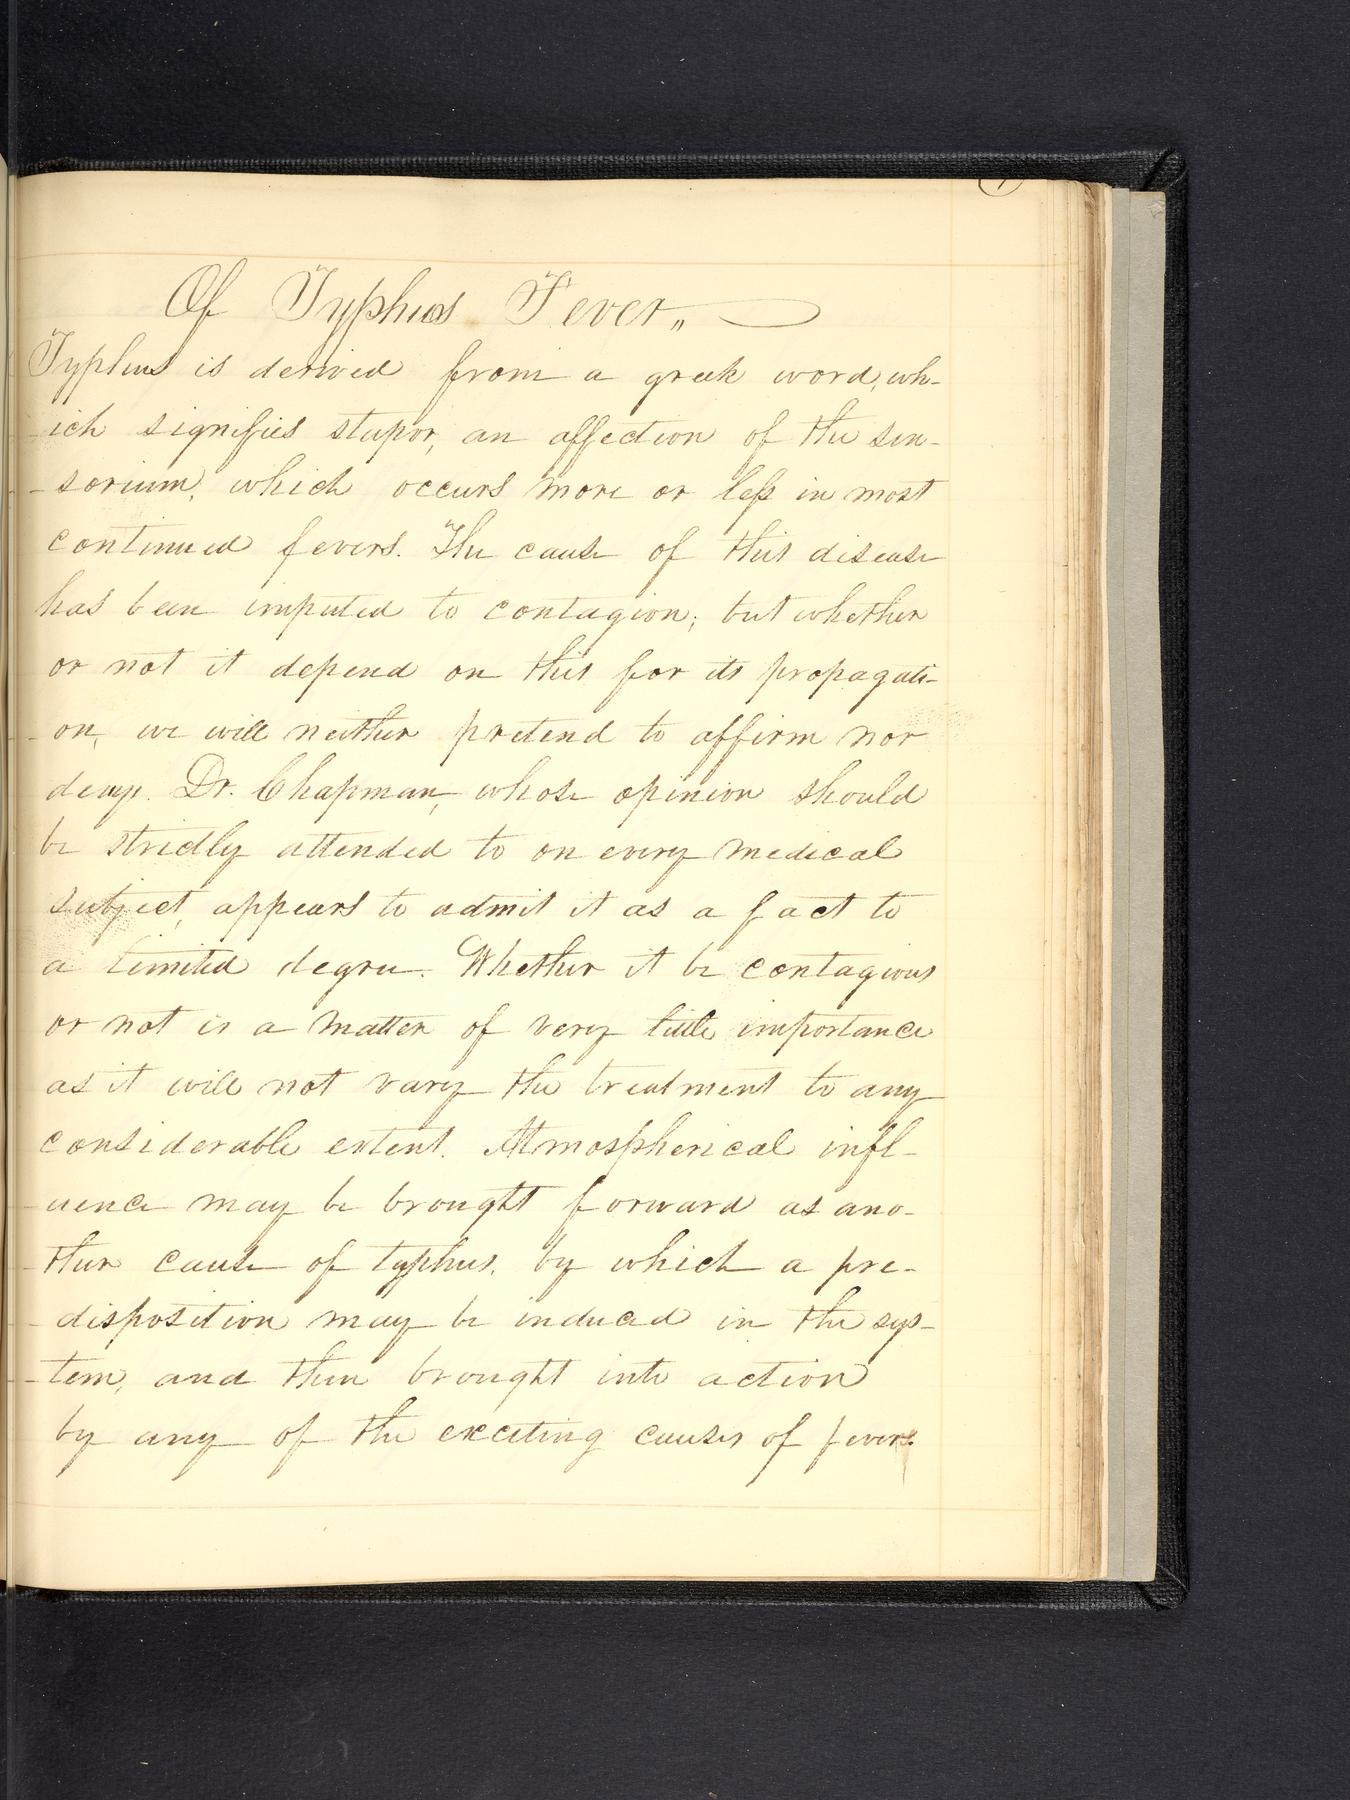 Of Typhus Fever,,
Typhus is derived from a greek word, wh-
ich signifies stupor, an affection of the sen-
-sorium, which occurs more or less in most
continued fevers. The cause of this disease
has been imputed to contagion; but whether
or not it depend on this for its propagati-
-on, we will neither pretend to affirm nor
deny. Dr. Chapman, whose opinion should
be strictly attended to on every medical
subject, appears to admit it as a fact to
a limited degree. Whether it be contagious
or not is a matter of very little importance
as it will not vary the treatment to any
considerable extent. Atmospherical infl-
-uence may be brought forward as ano-
-ther cause of typhus, by which a pre-
-disposition may be induced in the sys-
-tem, and then brought into action
by any of the exciting causes of fevers.